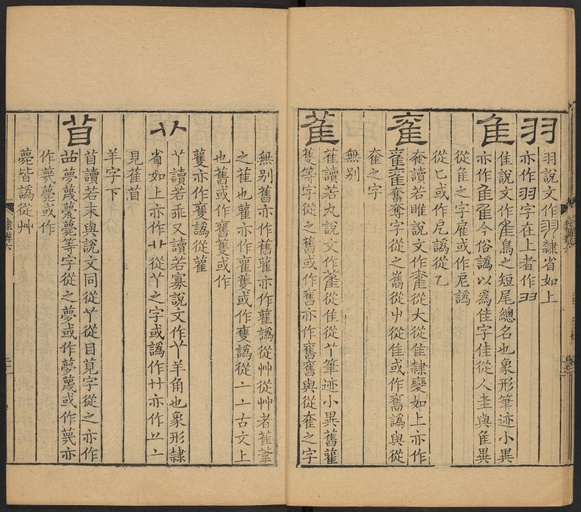 羽
羽說文作羽隸省如上
亦作羽字在上者作羽
隹
隹說文作隹鳥之短尾總名也象形筆迹小異
亦作隹隹今俗譌以爲佳字佳從人圭與隹異
從隹之字雇或作尼譌
從匕或作尼譌從乙
奞
奞讀若睢說文作奞從大從隹隸變如上亦作
奞奞奮奪字從之雋從屮從隹或作奮譌與從
奞之字
無别
雈
雈讀若丸說文作雈從隹從丫筆迹小異舊雚
蒦等字從之舊或作舊亦作舊舊與從奞之字
無别舊亦作舊雚亦作雚譌從艸從艸者萑葦
之萑也雚亦作雚蒦或作蒦譌從一一古文上
也舊或作舊舊或作
蒦亦作蒦譌從雚
丫
丫讀若乖又讀若寡說文作丫羊角也象形隸
省如上亦作艹從丫之字或譌作廾亦作䒑一
見雈苜
羊字下
苜
苜讀若末與說文同從丫從目莧字從之亦作
苜夢蔑薨薎等字從之夢或作夢蔑或作蔑亦
作蔑薨或作
薨皆譌從艸